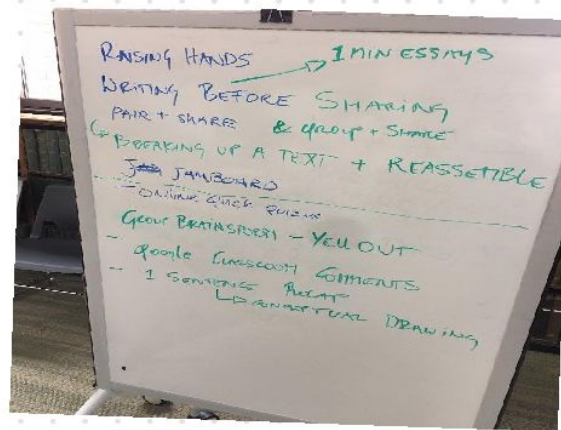 RAISING HANDS
1 MIN ESSAYS
WRITING BEFORE SHARING
PAIR + SHARE & GROUP + SHARE
BREAKING UP A TEXT + REASSEMBLE
JAMBOARD
- ONLINE QUICK
GROUP BRAINSTORM - YELL OUT
- GOOGLE CLASSROOM COMMENTS
- 1 SENTENCE RECAP
DRAWING